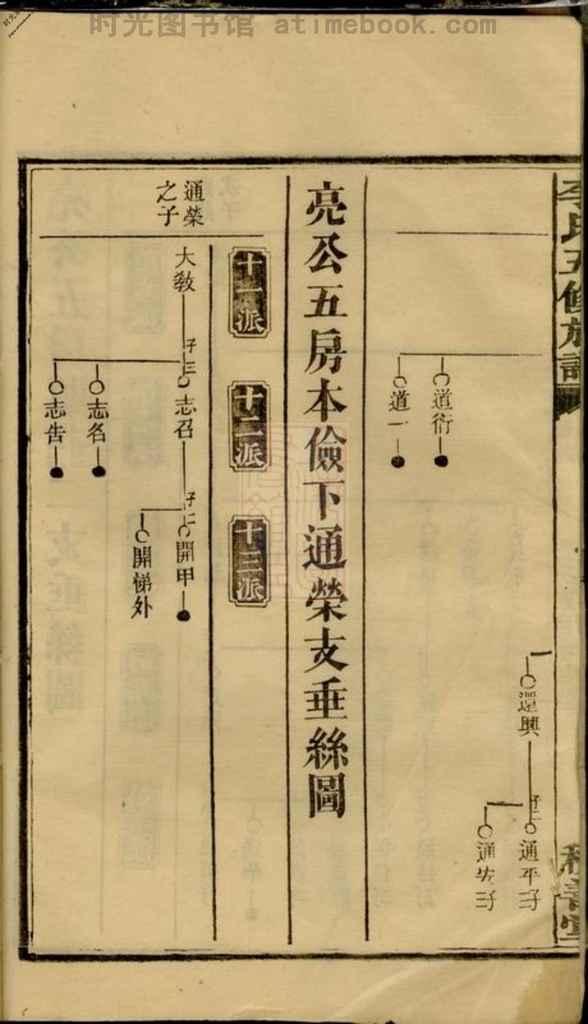 时光图书馆 atimebook.com
李氏五修族譜
道衍
道一
還興
子二
通平子
通安子
亮公五房本儉下通榮支垂絲圖
十一派
十二派
十三派
通榮
之子
大教
子三
志召
志名
志告
子二
開甲
開悌外